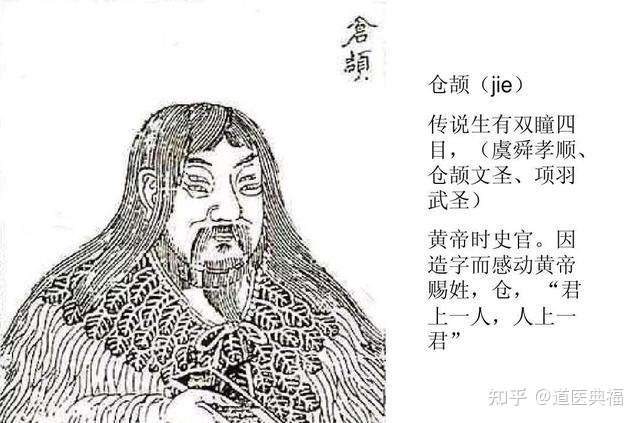 倉頡
仓颉（jie）
传说生有双瞳四
目，（虞舜孝顺、
仓颉文圣、项羽
武圣）
黄帝时史官。因
造字而感动黄帝
赐姓，仓， “君
上一人，人上一
君”
知乎 @道医典福